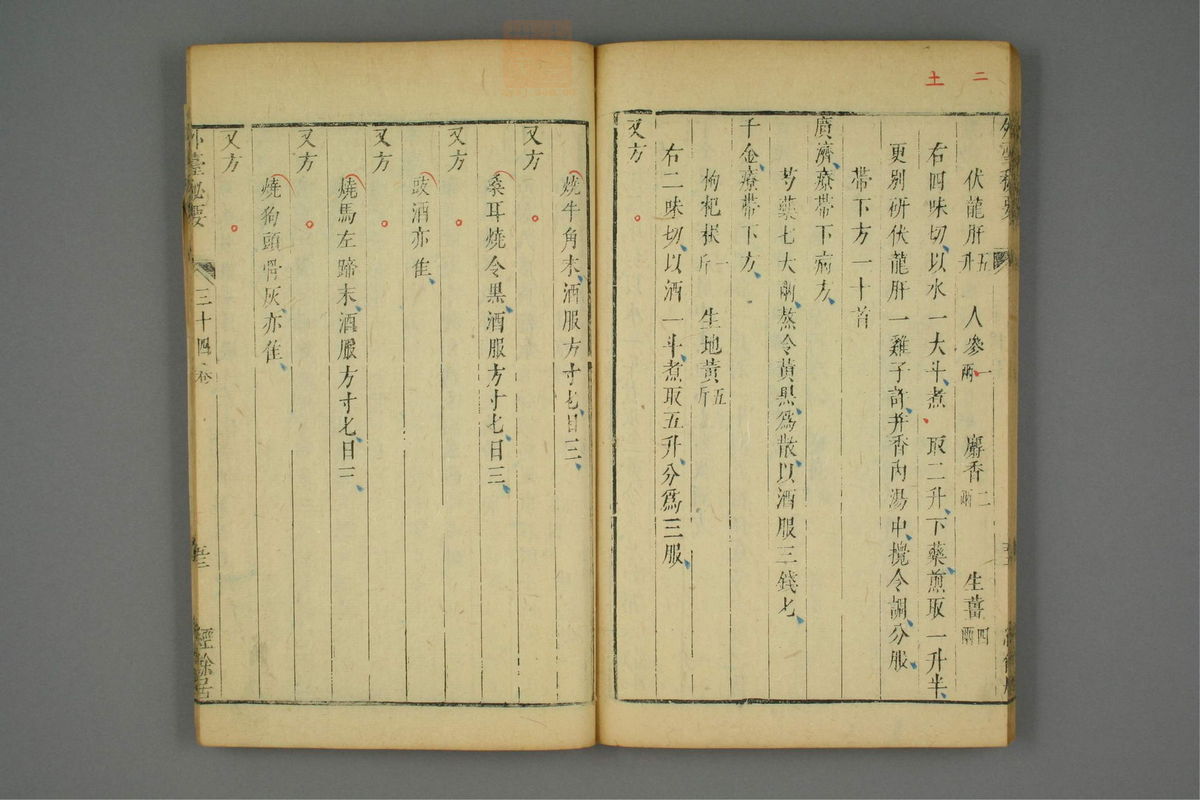 二
土
伏龍肝五升 人參一兩 麝香二兩 生薑四兩
右四味切以水一大斗煮取二升下藥煎取一升半
更別研伏龍肝一雞子許并香內湯中攪令調分服
帶下方一十首
廣濟療帶下病方
芍藥七大兩熬令黃黑爲散以酒服三錢匕
千金療帶下方
枸杞根一斤 生地黃五斤
右二味切以酒一斗煮取五升分爲三服
又方
燒牛角末酒服方寸匕日三
又方
桑耳燒令黑酒服方寸匕日三
又方
豉酒亦佳
又方
燒馬左蹄末酒服方寸匕日三
又方
燒狗頭骨灰亦佳
又方
外臺秘要 三十四卷 經餘居